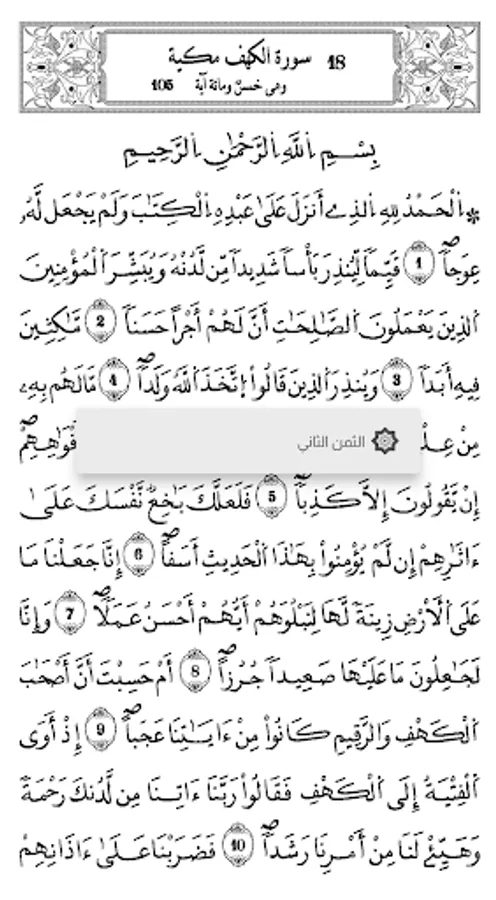 18 سورة الكهف مكية
وهي خمسٌ ومائة آية 105
بِسْمِ اِ۬للَّهِ اِ۬لرَّحْمَٰنِ اِ۬لرَّحِيمِ
* اِ۬لْحَمْدُ لِلهِ اِ۬لذِےٓ أَنزَلَ عَلَىٰ عَبْدِهِ اِ۬لْكِتَٰبَ وَلَمْ يَجْعَل لَّهُۥ
عِوَجاًۖ 1 قَيِّماً لِّيُنذِرَ بَأْساً شَدِيداً مِّن لَّدُنْهُ وَيُبَشِّرَ اَ۬لْمُؤْمِنِينَ
اَ۬لذِينَ يَعْمَلُونَ اَ۬لصَّٰلِحَٰتِ أَنَّ لَهُمْ أَجْراً حَسَناً 2 مَّٰكِثِينَ
فِيهِ أَبَداً 3 وَيُنذِرَ اَ۬لذِينَ قَالُواْ اُ۪تَّخَذَ اَ۬للَّهُ وَلَداًۖ 4 مَّا لَهُم بِهِۦ
مِنْ عِلْ
فْوَٰهِهِمْۖ
الثمن الثاني
إِنْ يَّقُولُونَ إِلَّا كَذِباًۖ 5 فَلَعَلَّكَ بَٰخِعٞ نَّفْسَكَ عَلَىٰٓ
ءَاثٰ۪رِهِمْ إِن لَّمْ يُؤْمِنُواْ بِهَٰذَا اَ۬لْحَدِيثِ أَسَفاًۖ 6 اِنَّا جَعَلْنَا مَا
عَلَى اَ۬لْأَرْضِ زِينَةً لَّهَا لِنَبْلُوَهُمْ أَيُّهُمْ أَحْسَنُ عَمَلًاۖ 7 وَإِنَّا
لَجَٰعِلُونَ مَا عَلَيْهَا صَعِيداً جُرُزاًۖ 8 اَمْ حَسِبْتَ أَنَّ أَصْحَٰبَ
اَ۬لْكَهْفِ وَالرَّقِيمِ كَانُواْ مِنْ ءَايَٰتِنَا عَجَباًۖ 9 إِذْ أَوَى
اَ۬لْفِتْيَةُ إِلَى اَ۬لْكَهْفِ فَقَالُواْ رَبَّنَا ءَاتِنَا مِن لَّدُنكَ رَحْمَةً
وَهَيِّئْ لَنَا مِنْ أَمْرِنَا رَشَداًۖ 10 فَضَرَبْنَا عَلَىٰٓ ءَاذَانِهِمْ